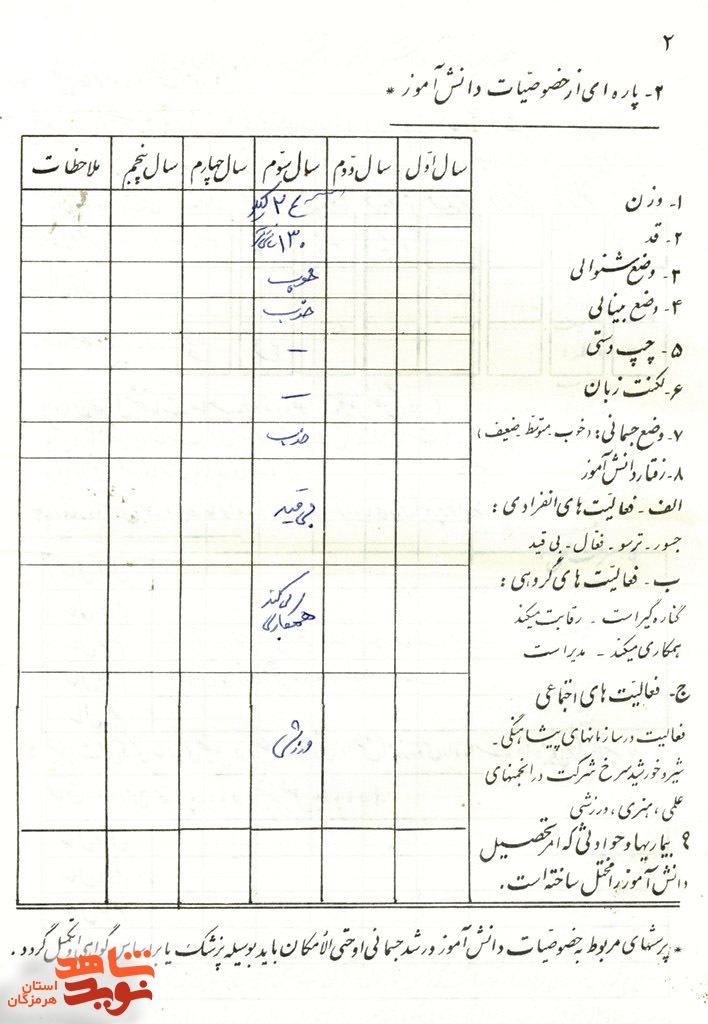 ۲
۲- پاره ای از خصوصیّات دانش آموز *
سال اوّل سال دوّم سال سوّم سال چهارم سال پنجم ملاحظات
۱- وزن ۲٤ کیلو
۲- قد ۱۳۰ سانتی‌متر
۳- وضع شنوائی خوب
۴- وضع بینائی خوب
۵- چپ دستی —
۶- لکنت زبان —
۷- وضع جسمانی: (خوب - متوسّط - ضعیف) خوب
۸- رفتار دانش آموز
الف - فعالیّت های انفرادی: بی قید
جسور - ترسو - فعّال - بی قید
ب - فعالیّت های گروهی:
کناره گیر است - رقابت میکند همکاری می کند
همکاری میکند - مدیر است
ج - فعالیّت های اجتماعی
فعالیت در سازمانهای پیشاهنگی - ورزشی
شیر و خورشید سرخ شرکت در انجمنهای
علمی ، هنری ، ورزشی
۹ بیماریها و حوادثی که امر تحصیل
دانش آموز را مختل ساخته است .
* پرسشهای مربوط به خصوصیّات دانش آموز و رشد جسمانی او حتی الأمکان باید بوسیله پزشک یا بر اساس گواهی او تکمیل گردد .
نوید شاهد
استان
هرمزگان